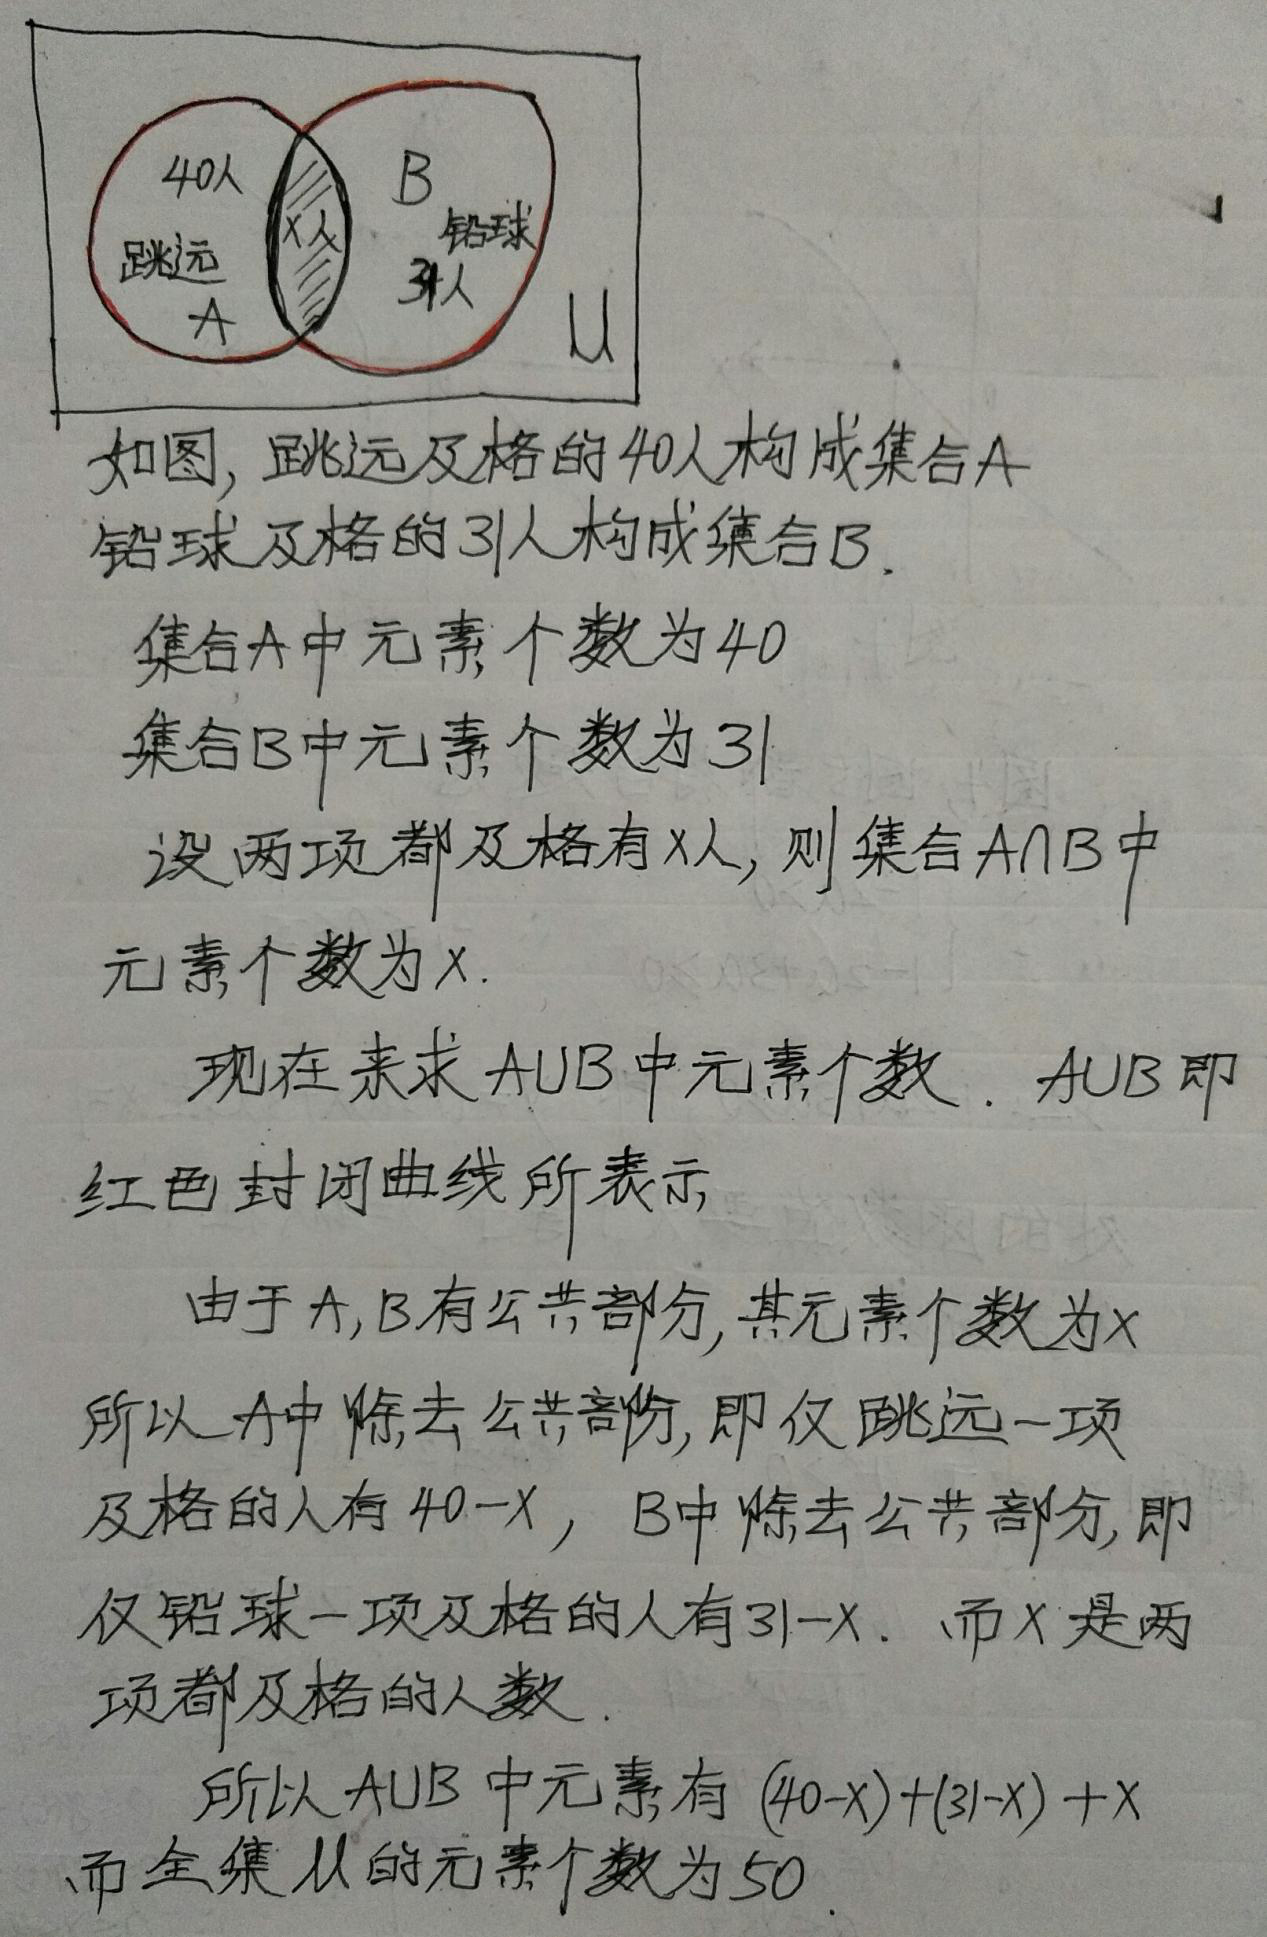 40人
跳远
A
x人
B
铅球
31人
U
如图,跳远及格的40人构成集合A
铅球及格的31人构成集合B.
集合A中元素个数为40
集合B中元素个数为31
设两项都及格有x人,则集合A∩B中
元素个数为x.
现在来求A∪B中元素个数. A∪B即
红色封闭曲线所表示
由于A,B有公共部分,其元素个数为x
所以A中除去公共部分,即仅跳远一项
及格的人有40-x, B中除去公共部分,即
仅铅球一项及格的人有31-x. 而x是两
项都及格的人数.
所以A∪B中元素有(40-x)+(31-x)+x
而全集U的元素个数为50.